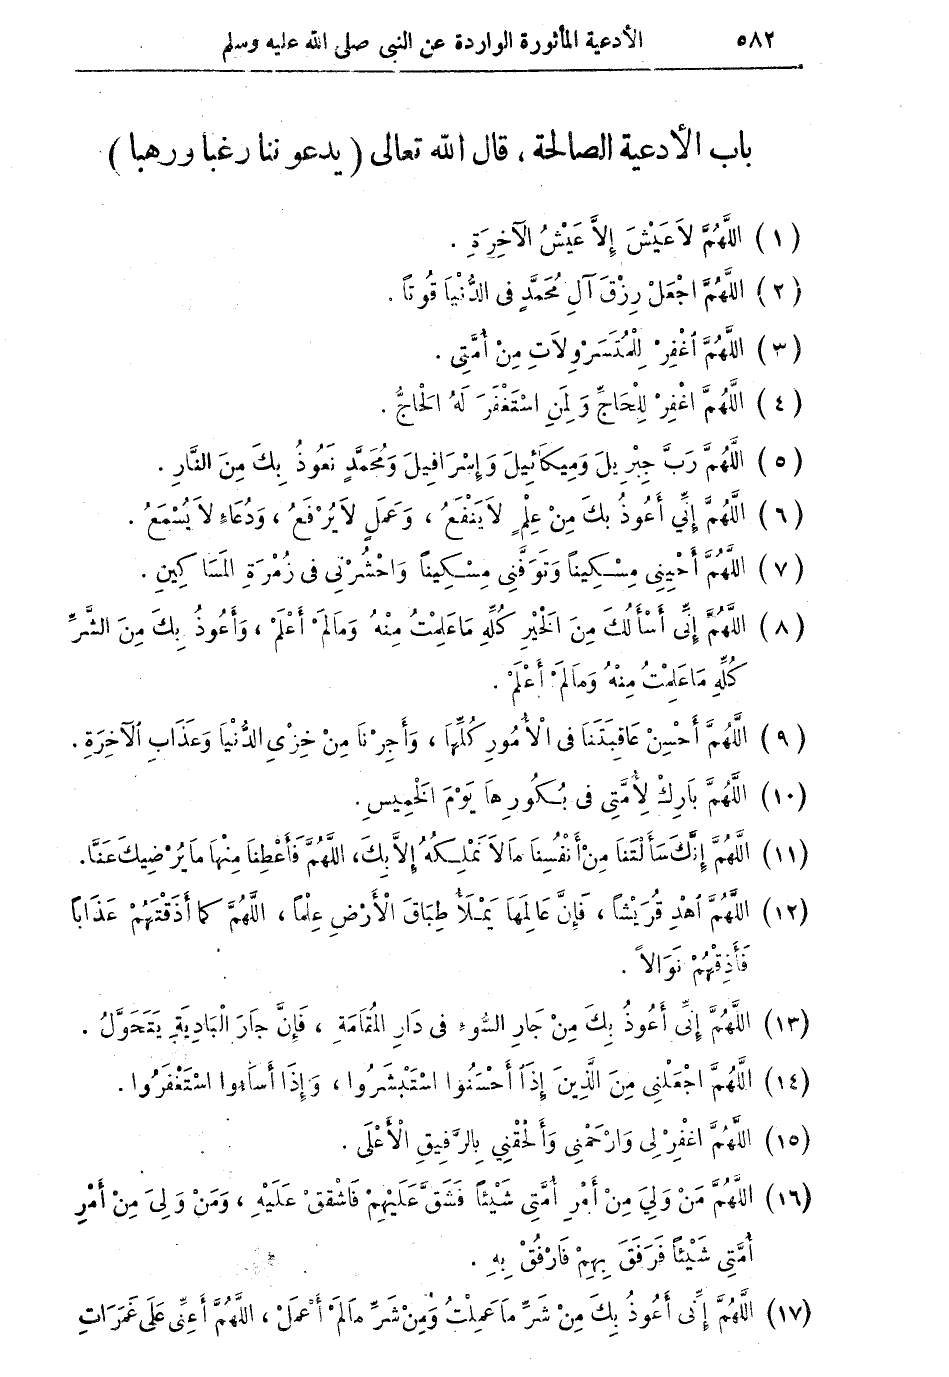 ٥٨٢ الأدعية المأثورة الواردة عن النبى صلى الله عليه وسلم
باب الأدعية الصالحة ، قال الله تعالى ( يدعوننا رغبا ورهبا )
(١) اللَّهُمَّ لاَعَيْشَ إِلاَّ عَيْشُ الآخِرَةِ .
(٢) اللَّهُمَّ اجْعَلْ رِزْقَ آلِ مُحَمَّدٍ فى الدُّنْيَا قُوتاً .
(٣) اللَّهُمَّ اغْفِرْ لِلْمُتَسَرْوِلاَتِ مِنْ أُمَّتِى .
(٤) اللَّهُمَّ اغْفِرْ لِلْحَاجِّ وَلِمَنِ اسْتَغْفَرَ لَهُ الْحَاجُّ .
(٥) اللَّهُمَّ رَبَّ جِبْرِيلَ وَمِيكَائِيلَ وَإِسْرَافِيلَ وَمُحَمَّدٍ نَعُوذُ بِكَ مِنَ النَّارِ .
(٦) اللَّهُمَّ إِنِّي أَعُوذُ بِكَ مِنْ عِلْمٍ لاَيَنْفَعُ ، وَعَمَلٍ لاَيُرْفَعُ ، وَدُعَاءٍ لاَيُسْمَعُ .
(٧) اللَّهُمَّ أَحْيِنِى مِسْكِيناً وَتَوَفَّنِى مِسْكِيناً وَاحْشُرْنِى فى زُمْرَةِ الْمَسَاكِينِ .
(٨) اللَّهُمَّ إِنِّى أَسْأَلُكَ مِنَ الْخَيْرِ كُلِّهِ مَاعَلِمْتُ مِنْهُ وَمَالَمْ أَعْلَمْ ، وَأَعُوذُ بِكَ مِنَ الشَّرِّ
كُلِّهِ مَاعَلِمْتُ مِنْهُ وَمَالَمْ أَعْلَمْ .
(٩) اللَّهُمَّ أَحْسِنْ عَاقِبَتَنَا فى الْأُمُورِ كُلِّهَا ، وَأَجِرْنَا مِنْ خِزْىِ الدُّنْيَا وَعَذَابِ الآخِرَةِ .
(١٠) اللَّهُمَّ بَارِكْ لِأُمَّتِى فى بُكُورِهَا يَوْمَ الْخَمِيسِ .
(١١) اللَّهُمَّ إِنَّكَ سَأَلْتَنَا مِنْ أَنْفُسِنَا مَالاَ نَمْلِكُهُ إِلاَّ بِكَ، اللَّهُمَّ فَأَعْطِنَا مِنْهَا مَايُرْضِيكَ عَنَّا .
(١٢) اللَّهُمَّ اهْدِ قُرَيْشاً ، فَإِنَّ عَالِمَهَا يَمْلَأُ طِبَاقَ الْأَرْضِ عِلْماً ، اللَّهُمَّ كَمَا أَذَقْتَهُمْ عَذَاباً
فَأَذِقْهُمْ نَوَالاً .
(١٣) اللَّهُمَّ إِنِّى أَعُوذُ بِكَ مِنْ جَارِ السُّوءِ فى دَارِ الْمُقَامَةِ ، فَإِنَّ جَارَ الْبَادِيَةِ يَتَحَوَّلُ .
(١٤) اللَّهُمَّ اجْعَلْنِى مِنَ الَّذِينَ إِذَا أَحْسَنُوا اسْتَبْشَرُوا ، وَإِذَا أَسَاءُوا اسْتَغْفَرُوا .
(١٥) اللَّهُمَّ اغْفِرْ لِى وَارْحَمْنِى وَأَلْحِقْنِي بِالرَّفِيقِ الْأَعْلَى .
(١٦) اللَّهُمَّ مَنْ وَلِيَ مِنْ أَمْرِ أُمَّتِى شَيْئاً فَشَقَّ عَلَيْهِمْ فَاشْقُقْ عَلَيْهِ ، وَمَنْ وَلِىَ مِنْ أَمْرِ
أُمَّتِى شَيْئاً فَرَفَقَ بِهِمْ فَارْفُقْ بِهِ .
(١٧) اللَّهُمَّ إِنِّى أَعُوذُ بِكَ مِنْ شَرِّ مَاعَمِلْتُ وَمِنْ شَرِّ مَالَمْ أَعْمَلْ ، اللَّهُمَّ أَعِنِّى عَلَى غَمَرَاتِ